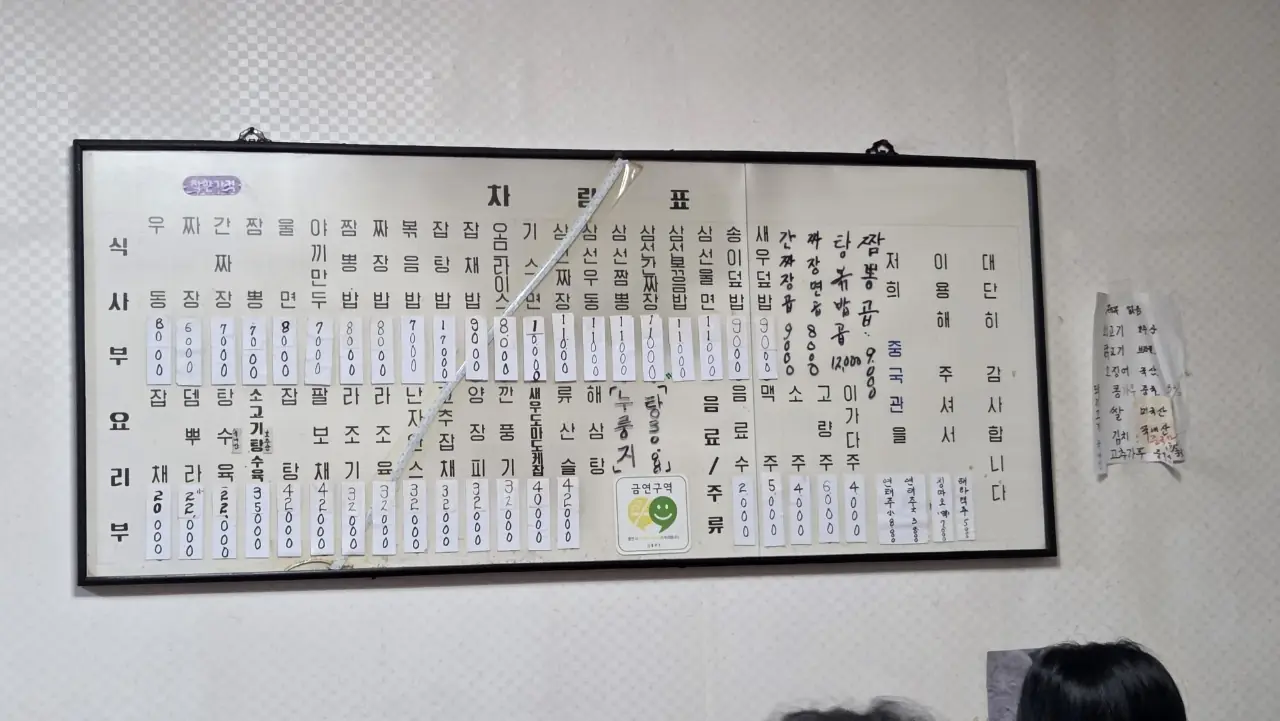 착한가격
차림표
식사부
우동 8000
짜장 6000
간짜장 7000
짬뽕 7000
울면 8000
야끼만두 7000
짬뽕밥 8000
짜장밥 8000
볶음밥 7000
잡탕밥 17000
잡채밥 9000
오므라이스 8000
기스면 11000
삼선짜장 11000
삼선우동 11000
삼선짬뽕 11000
삼선간짜장 11000
삼선볶음밥 11000
삼선울면 11000
송이덮밥 9000
새우덮밥 9000
간짜장곱 9000
짜장면곱 8000
탕볶밥곱 12,000
짬뽕곱 9,000
요리부
잡채 20000
뎀뿌라 22000
탕수육 22000
소고기탕수육 35000
잡탕 42000
팔보채 42000
라조기 32000
라조육 32000
난자완스 32000
고추잡채 32000
양장피 32000
깐풍기 32000
새우도마도케찹 40000
류산슬 42000
해삼탕
「누룽지」
금연구역
음료/주류
음료수 2000
맥주 5000
소주 4000
고량주 6000
이가다주 4000
저희 중국관을
이용해 주셔서
대단히 감사합니다
쌀
김치
고추가루